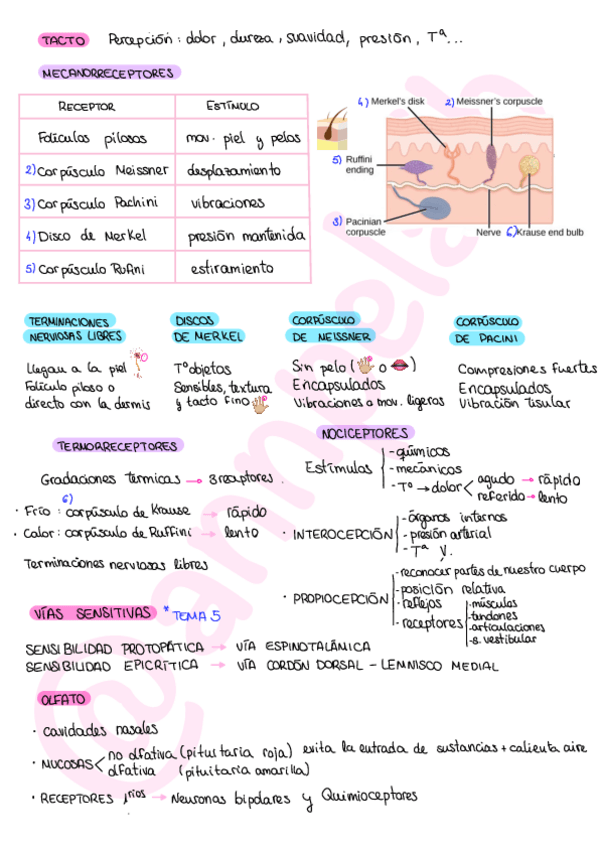 TACTO Percepción: dolor, dureza, suavidad, presión, Tª...
MECANORRECEPTORES
RECEPTOR ESTÍMULO
Folículos pilosos mov. piel y pelos
2) Corpúsculo Meissner desplazamiento
3) Corpúsculo Pachini vibraciones
4) Disco de Merkel presión mantenida
5) Corpúsculo Rufini estiramiento
4) Merkel's disk 2) Meissner's corpuscle
5) Ruffini ending
3) Pacinian corpuscle
Nerve 6) Krause end bulb
TERMINACIONES NERVIOSAS LIBRES
Llegan a la piel
Folículo piloso o
directo con la dermis
DISCOS DE MERKEL
Tº objetos
Sensibles, textura
y tacto fino
CORPÚSCULO DE NEISSNER
Sin pelo ( o )
Encapsulados
Vibraciones o mov. ligeros
CORPÚSCULO DE PACINI
Compresiones fuertes
Encapsulados
Vibración tisular
TERMORRECEPTORES
Gradaciones térmicas → 3 receptores.
6)
· Frío: corpúsculo de Krause → rápido
· Calor: corpúsculo de Ruffini → lento
Terminaciones nerviosas libres
NOCICEPTORES
Estímulos
- químicos
- mecánicos
- Tº → dolor
agudo → rápido
referido → lento
· INTEROCEPCIÓN
- órganos internos
- presión arterial
- Tª V.
· PROPIOCEPCIÓN
- reconocer partes de nuestro cuerpo
- posición relativa
- reflejos
- receptores
- músculos
- tendones
- articulaciones
- s. vestibular
VÍAS SENSITIVAS * TEMA 5
SENSIBILIDAD PROTOPÁTICA → VÍA ESPINOTALÁMICA
SENSIBILIDAD EPICRÍTICA → VÍA CORDÓN DORSAL - LEMNISCO MEDIAL
OLFATO
· Cavidades nasales
· MUCOSAS
no olfativa (pituitaria roja) evita la entrada de sustancias + calienta aire
olfativa (pituitaria amarilla)
· RECEPTORES 1rios → Neuronas bipolares y Quimioceptores